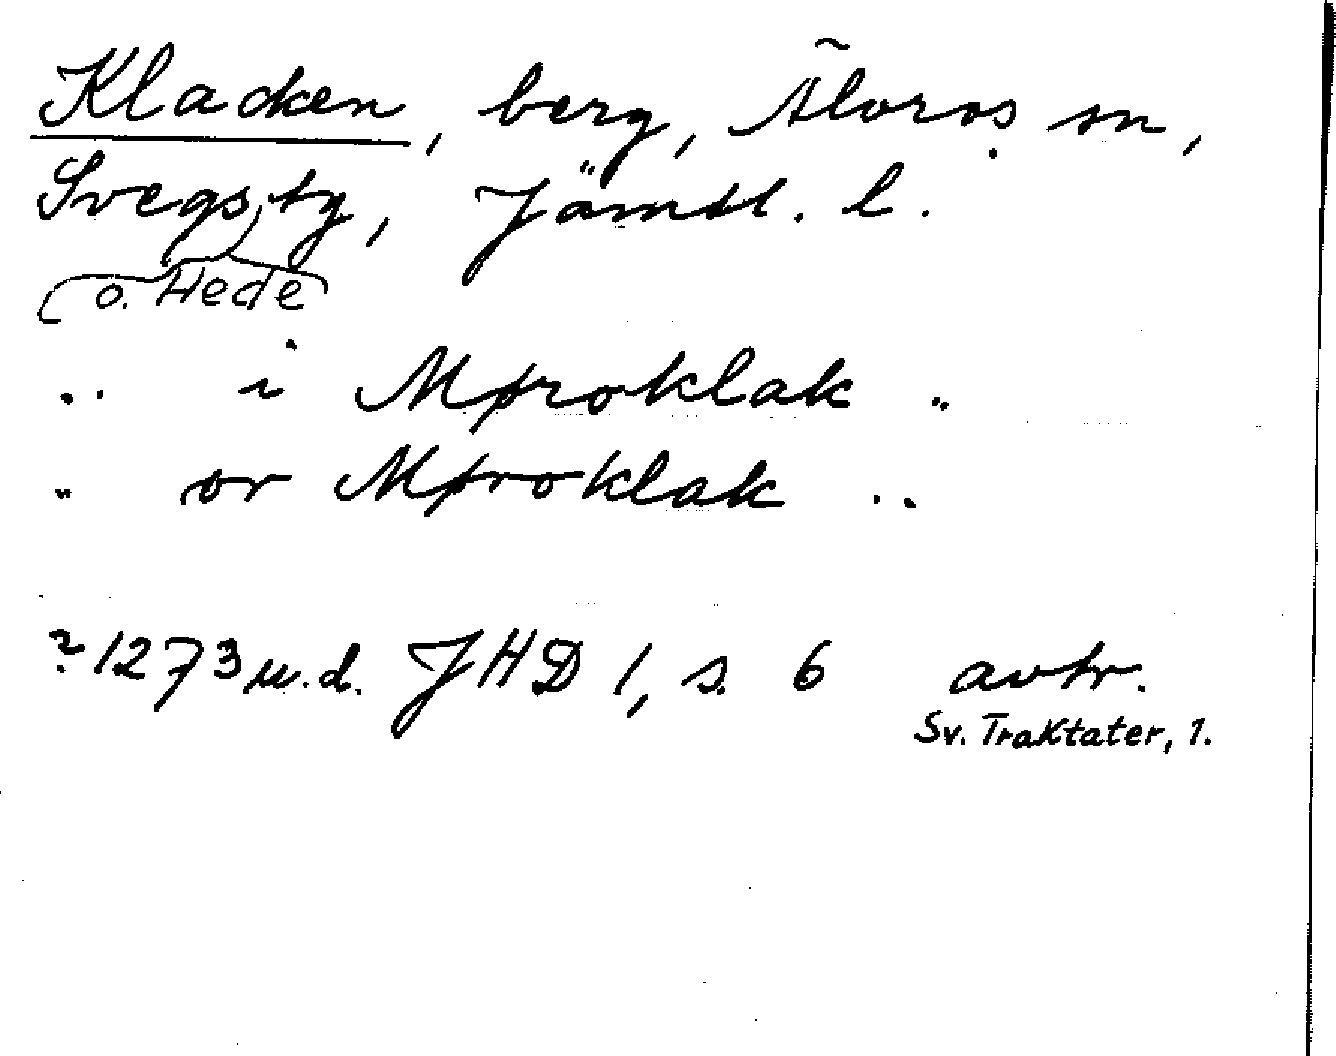 Klacken, berg, Älvros sn,
Svegs tg, Jämtl. l.
o. Hede
" i Mproklak "
" or Mproklak "
? 1273 u.d. JHD 1, s. 6 avtr.
Sv. Traktater, 1.